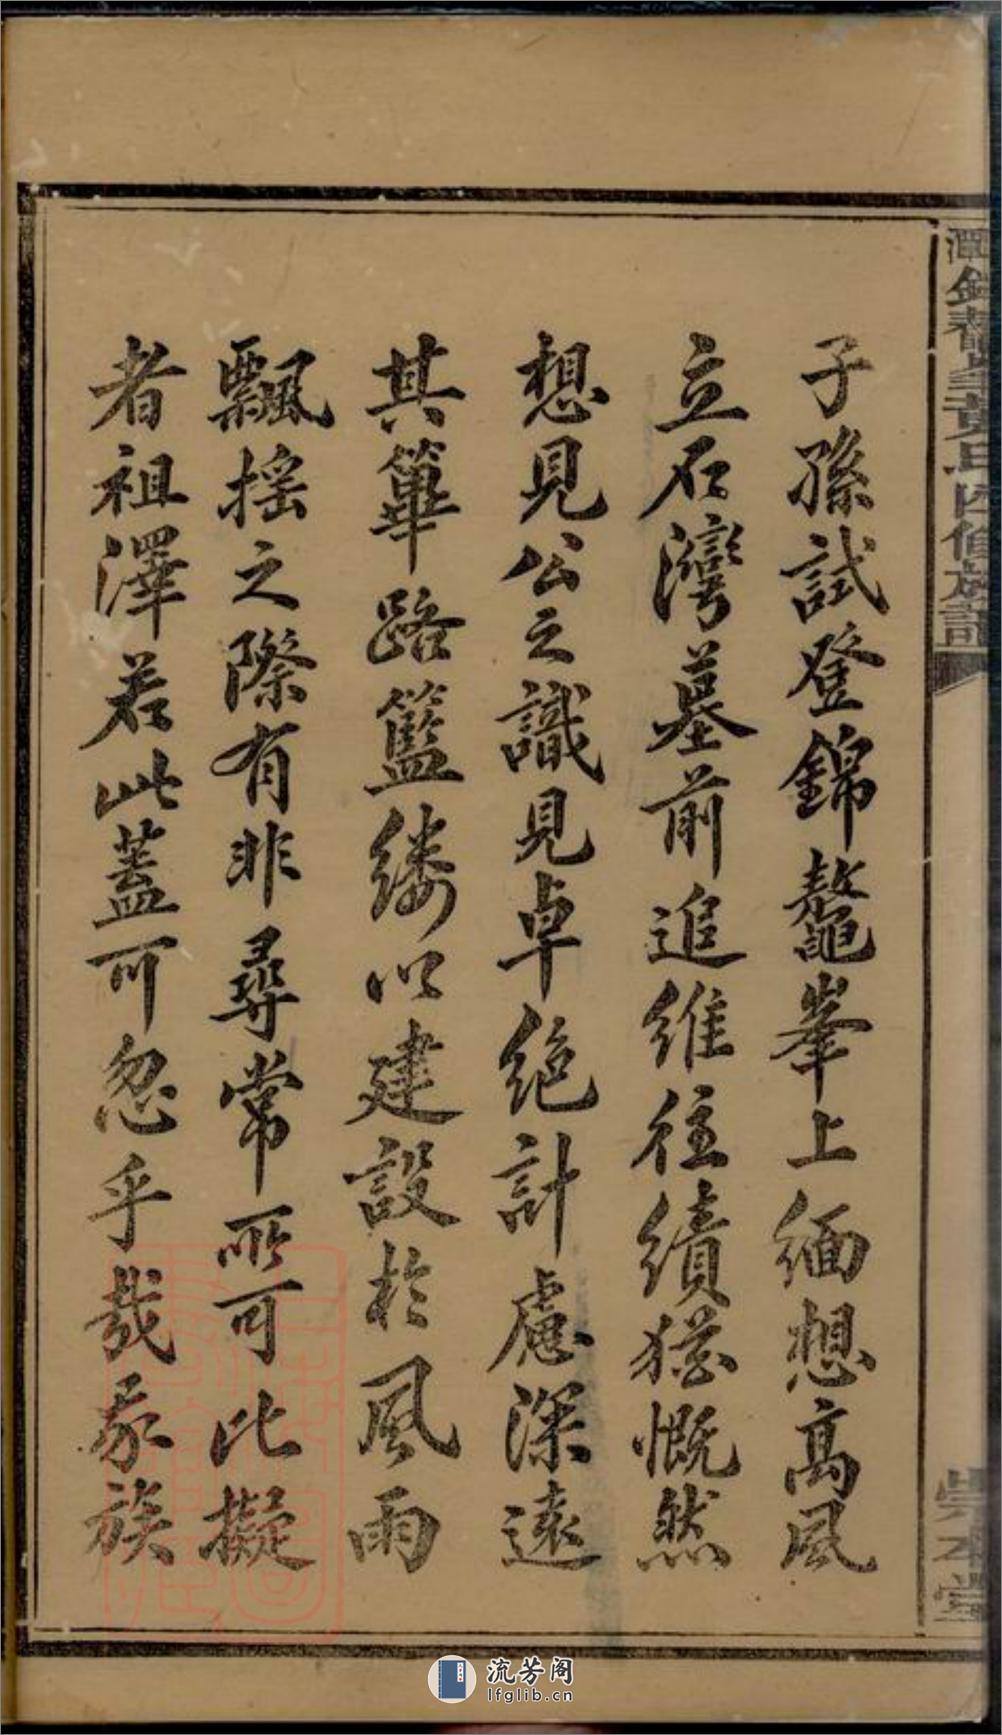 子孫試登錦鼇峯上緬想高風
立石灣墓前追維往績猶慨然
想見公之識見卓絕計慮深遠
其篳路籃縷以建設於風雨
飄摇之際有非尋常所可比擬
者祖澤若此蓋可忽乎哉家族
氏四修族記
崇本堂
流芳阁
lfglib.cn